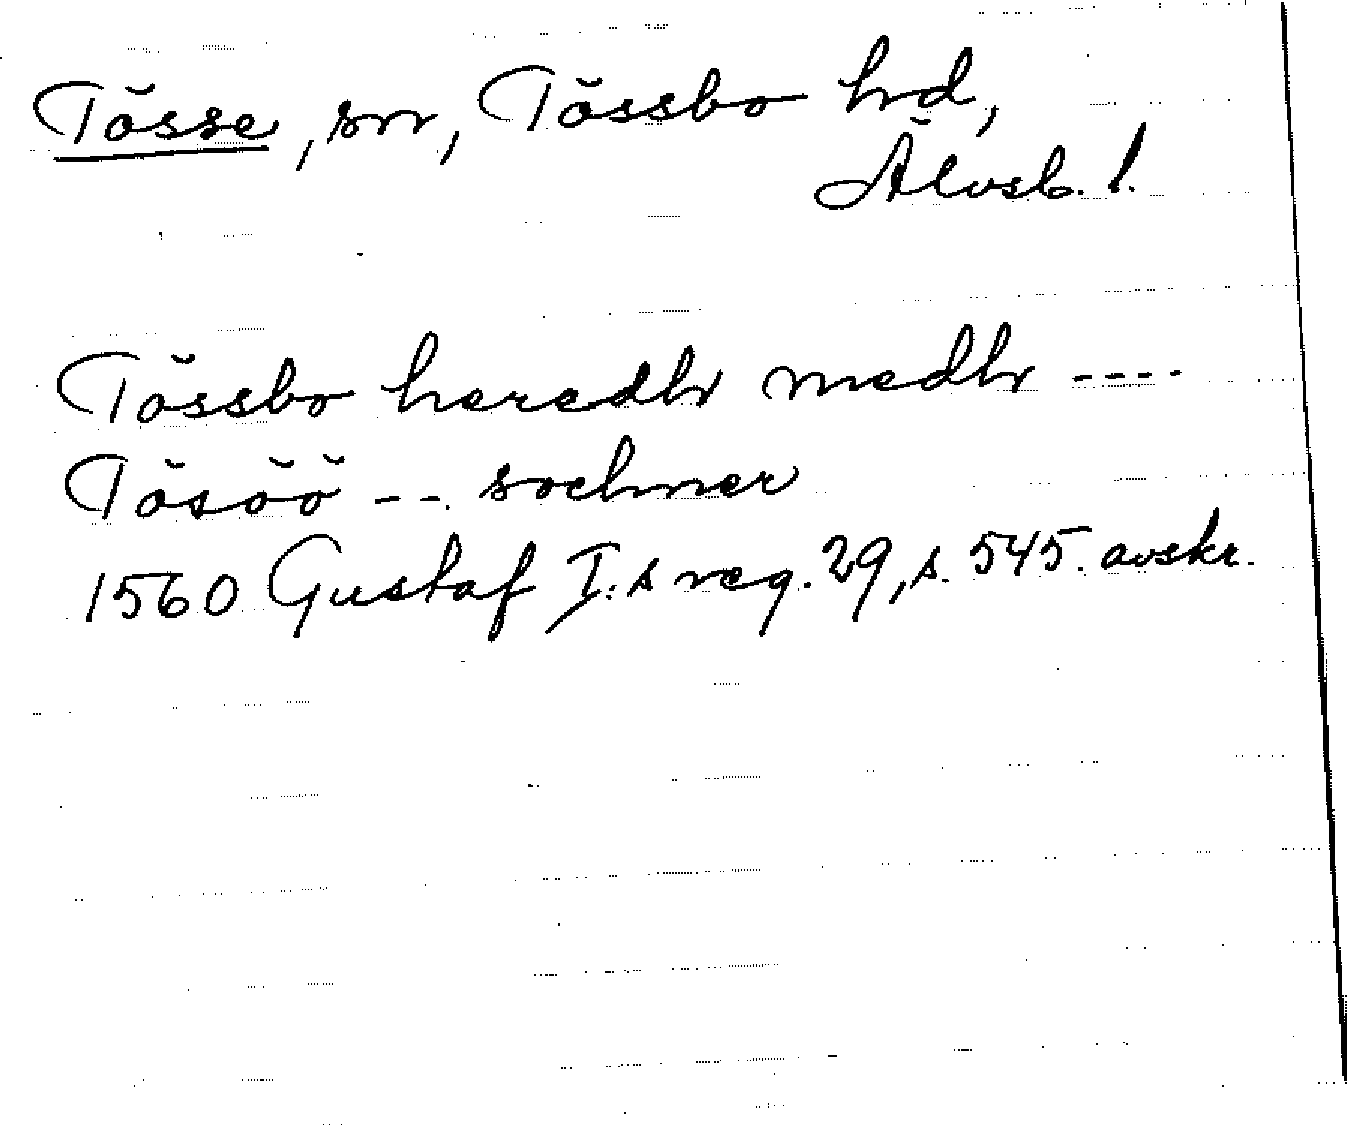 Tösse, sn, Tössbo hd,
Älvsb. l.
Tössbo heredh medh ----
Tösöö --. sochner
1560 Gustaf I:s reg. 29, s. 545. avskr.